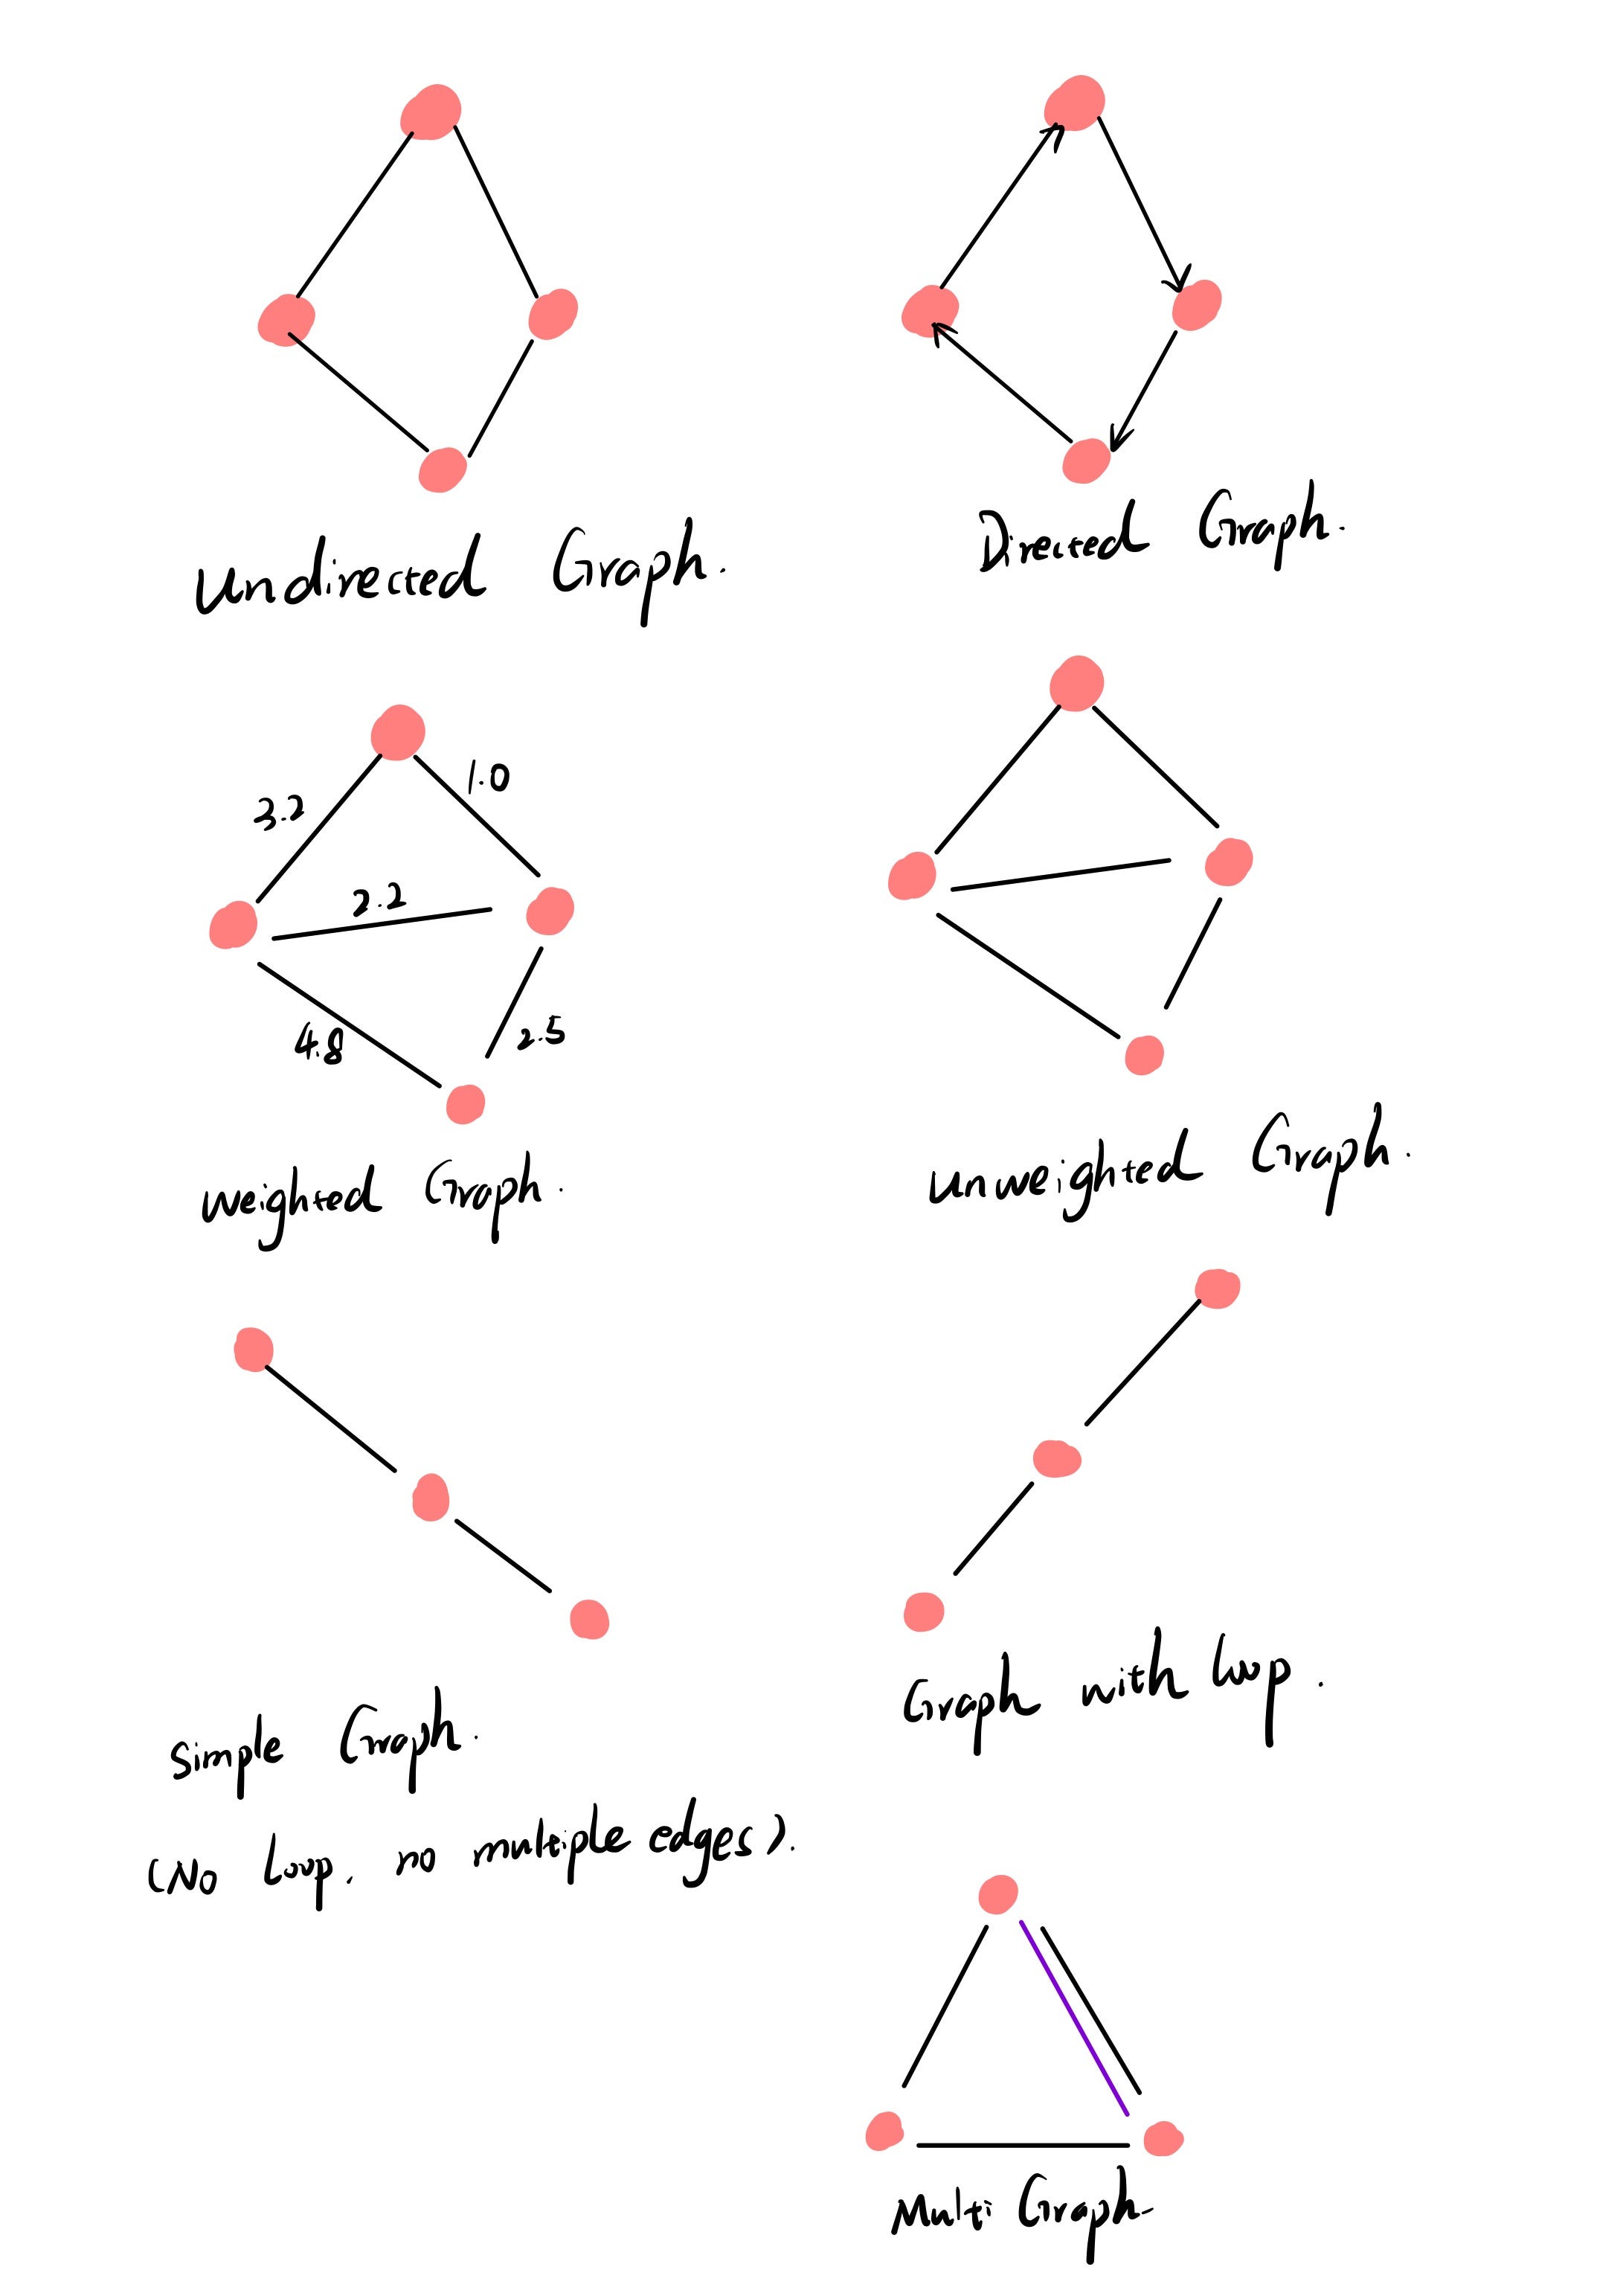 Undirected Graph.
Directed Graph.
3.2
1.0
2.2
4.8
2.5
weighted Graph.
unweighted Graph.
Simple Graph.
(No Loop, no multiple edges).
Graph with Loop.
Multi Graph.